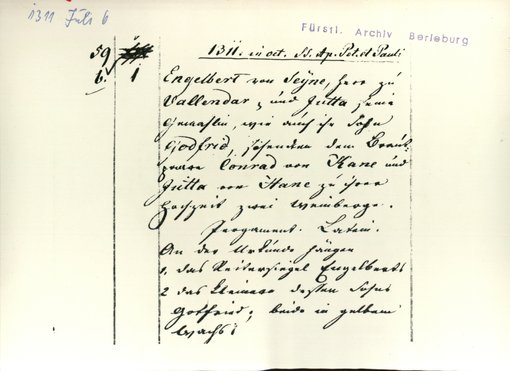 1311 Juli 6
Fürstl. Archiv Berleburg
59
6. 1
1311. in oct. SS. Ap. Pet. et Pauli
Engelbert von Seyne, Herr zu
Vallendar, und Jutta seine
Gemahlin, wie auch ihr Sohn
Godfrid, schenken dem Braut-
paare Conrad von Hane und
Jutta von Hane zu ihrer
Hochzeit zwei Weinberge.
Pergament. Latein.
An der Urkunde hängen
1, das Reitersiegel Engelberts
2 das kleinere dessen Sohns
Gotfried; beide in gelbem
Wachs;